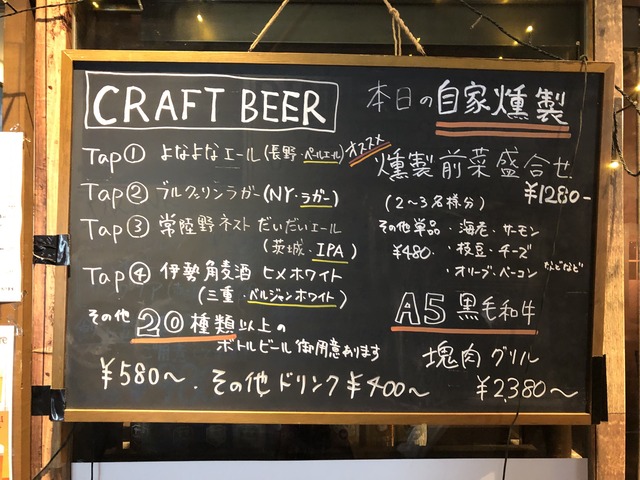 CRAFT BEER
Tap① よなよなエール(長野・ペールエール)
Tap② ブルックリンラガー(NY・ラガー)
Tap③ 常陸野ネスト だいだいエール
(茨城・IPA)
Tap④ 伊勢角麦酒 ヒメホワイト
(三重・ベルジャンホワイト)
その他 20種類以上の
ボトルビール御用意あります
¥580〜. その他ドリンク ¥400〜
本日の自家燻製
オススメ
燻製前菜盛合せ
¥1280-
(2〜3名様分)
その他単品・海老・サーモン
¥480. ・枝豆・チーズ
・オリーブ・ベーコン などなど
A5黒毛和牛
塊肉グリル
¥2,380〜